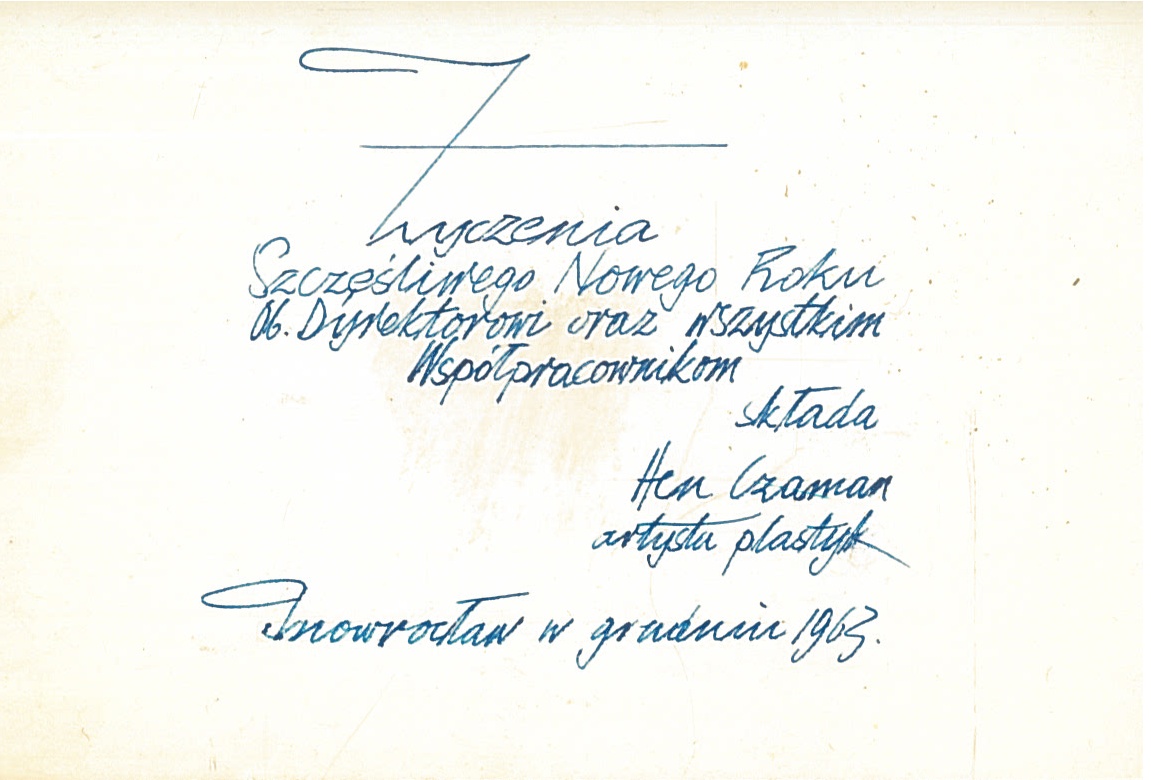 Życzenia
Szczęśliwego Nowego Roku
Ob. Dyrektorowi oraz wszystkim
Współpracownikom
składa
Hen Czaman
artysta plastyk
Inowrocław w grudniu 1963.